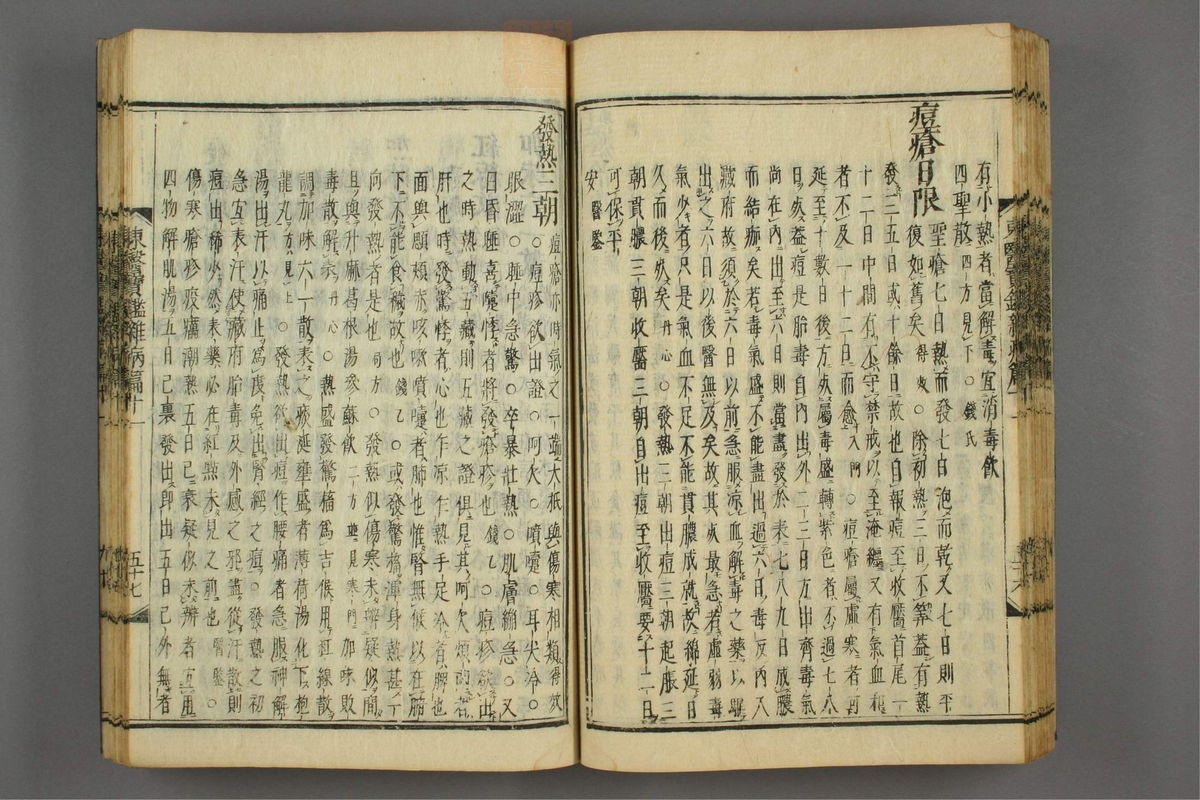 有小熱者當解毒宜消毒飲
四聖散四方見下○錢氏
痘瘡日限 聖瘡七日熱而發七日泡而乾又七日則平
復如舊矣得效○除初熱三日不筭蓋有熱
發三五日或十餘日故也自報痘至收靨首尾一
十二日中間有不守禁戒以至淹纏又有氣血和
者不及一十二日而愈入門○痘瘡屬虛寒者可
延至十數日後方死屬毒盛轉紫色者不過七八
日死蓋痘是胎毒自內出外二三日方出齊毒氣
尚在內出至六日則當盡發於表七八九日成膿
而結痂矣若毒氣盛不能盡出過六日毒反內入
藏府故須於六日以前急服涼血解毒之藥以驅
出之六日以後醫無及矣故其死最急若虛弱毒
氣少者只是氣血不足不能貫膿成就故綿延日
久而後死矣丹心○發熱三朝出痘三朝起脹三
朝貫膿三朝收靨三朝自出痘至收靨要十二日
可保平
安醫鑑
發熱三朝 痘瘡亦時氣之一端大抵與傷寒相類得效
○痘疹欲出證○呵欠○噴嚏○耳尖冷○
眼澀○睡中急驚○卒暴壯熱○肌膚繃急○又
曰昏睡喜嚏悸者將發瘡疹也錢乙○痘疹欲出
之時熱動五藏則五藏之證俱見其呵欠煩悶者
肝也時發驚悸者心也乍涼乍熱手足冷者脾也
面與顋頰赤咳嗽噴嚏者肺也惟腎無候以在府
下不能食穢故也錢乙○或發驚搐渾身熱甚一
向發熱者是也局方○發熱似傷寒未辨疑似間
且與升麻葛根湯參蘇飮二方並見寒門加味敗
毒散解表丹心○熱盛發驚搐爲吉候用紅線散
調加味六一散表之痰涎壅盛者薄荷湯化下抱
龍丸方見上○發熱欲出痘作腰痛者急服神解
湯出汗以痛止爲度免出腎經之痘○發熱之初
急宜表汗使藏府胎毒及外感之邪盡從汗散則
痘出稀少然表藥必在紅點未見之前也醫鑑○
傷寒瘡疹疫癘潮熱五日已來疑似未辨者宜用
四物解肌湯○五日已裏發出卽出五日已外無者
東醫寶鑑雜病篇十一
五十七